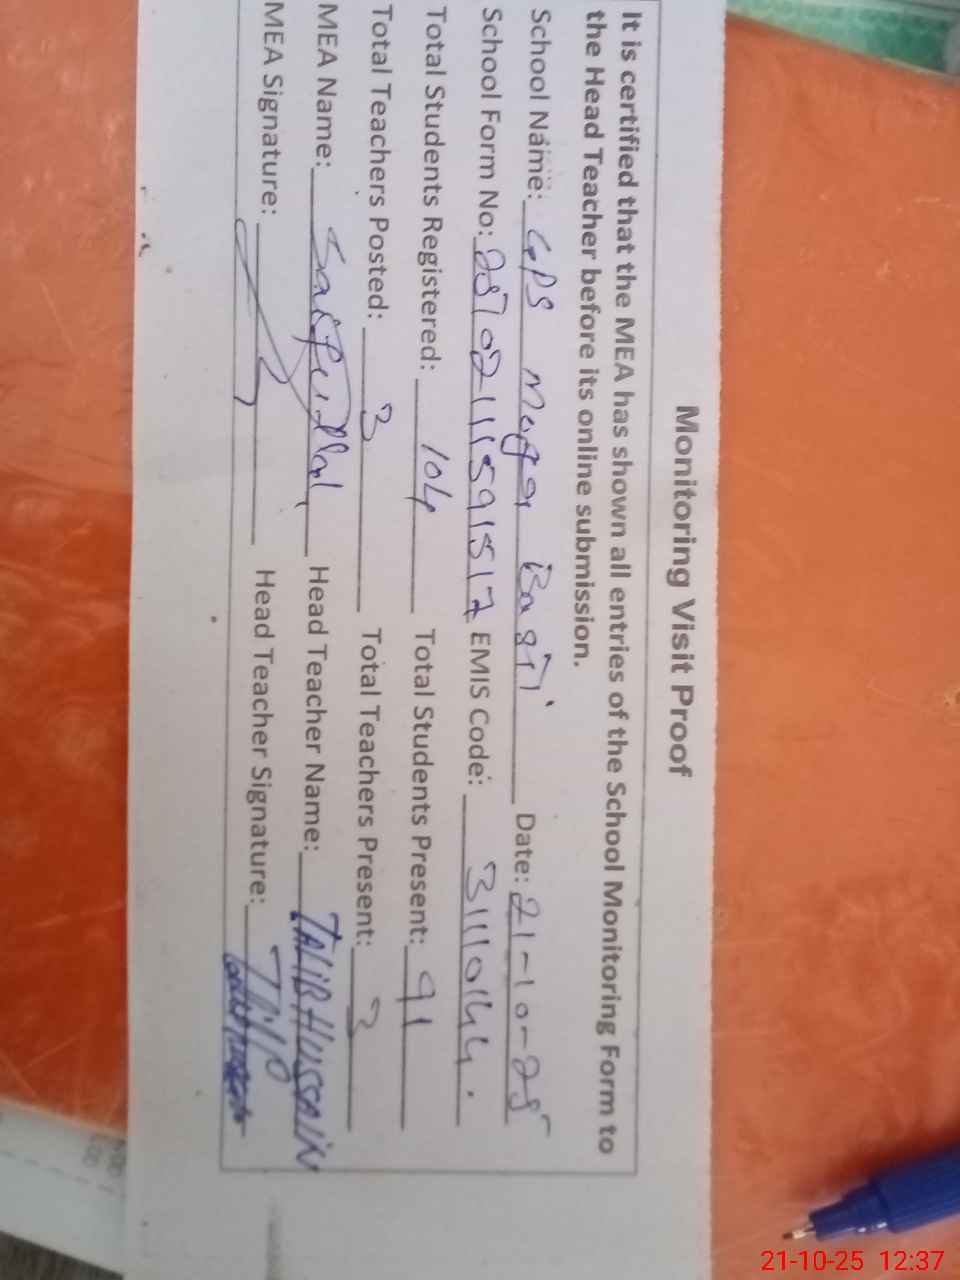 Monitoring Visit Proof
It is certified that the MEA has shown all entries of the School Monitoring Form to
the Head Teacher before its online submission.
School Name: GPS Maga Banti Date: 21-10-25
School Form No: 25702111591517 EMIS Code: 3111044.
Total Students Registered: 104 Total Students Present: 91
Total Teachers Posted: 3 Total Teachers Present: 3
MEA Name: Saifullah Head Teacher Name: TALIB HUSSAIN
MEA Signature: Head Teacher Signature:
21-10-25 12:37